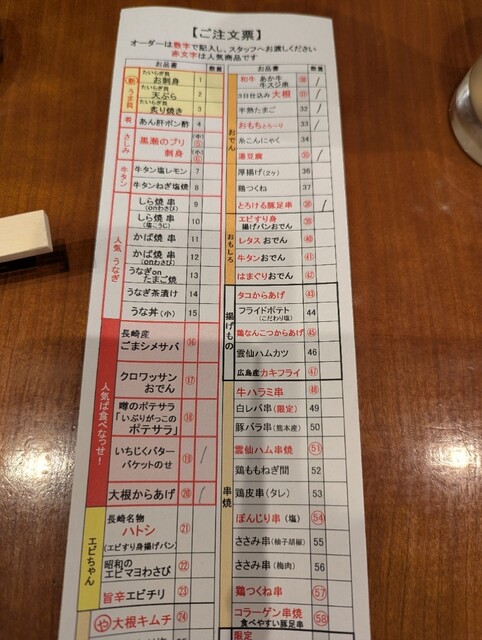 【ご注文票】
オーダーは数字で記入し、スタッフへお渡しください
赤文字は人気商品です
お品書 数量
うま貝
たいらぎ貝
お刺身 1
たいらぎ貝
天ぷら 2
たいらぎ貝
炙り焼き 3
肴 あん肝ポン酢 4
さしみ
黒瀬のブリ
刺身
(中) 5
(小) 6
牛タン
牛タン塩レモン 7
牛タンねぎ塩焼 8
人気 うなぎ
しら焼 串
(onわさび) 9
しら焼 串
(塩こうじ) 10
かば焼 串 11
かば焼 串
(onわさび) 12
うなぎon
たまご焼 13
うなぎ茶漬け 14
うな丼(小) 15
人気ば食べなっせ!
長崎産
ごまシメサバ 16
クロワッサン
おでん 17
噂のポテサラ
「いぶりがっこの
ポテサラ」 18
いちじくバター
バケットのせ 19 /
大根からあげ 20 /
エビちゃん
長崎名物
ハトシ
(エビすり身揚げパン) 21
昭和の
エビマヨわさび 22
旨辛エビチリ 23
や 大根キムチ 24
お品書 数量
おでん
和牛 あか牛
牛スジ串 30 /
3日仕込み 大根 31 /
半熟たまご 32 /
おもちとろ〜り 33 /
糸こんにゃく 34
湯豆腐 35 /
厚揚げ(2ヶ) 36
鶏つくね 37
とろける豚足串 38 /
おもしろ
エビすり身
揚げパンおでん 39
レタス おでん 40
牛タン おでん 41
はまぐりおでん 42
揚げもの
タコからあげ 43
フライドポテト
(こだわり塩) 44
鶏なんこつからあげ 45
雲仙ハムカツ 46
広島産カキフライ 47
串焼
牛ハラミ串 48
白レバ串(限定) 49
豚バラ串(熊本産) 50
雲仙ハム串焼 51
鶏ももねぎ間 52
鶏皮串(タレ) 53
ぼんじり串(塩) 54
ささみ串(柚子胡椒) 55
ささみ串(梅肉) 56
鶏つくね串 57
コラーゲン串焼
食べやすい豚足串 58
限定